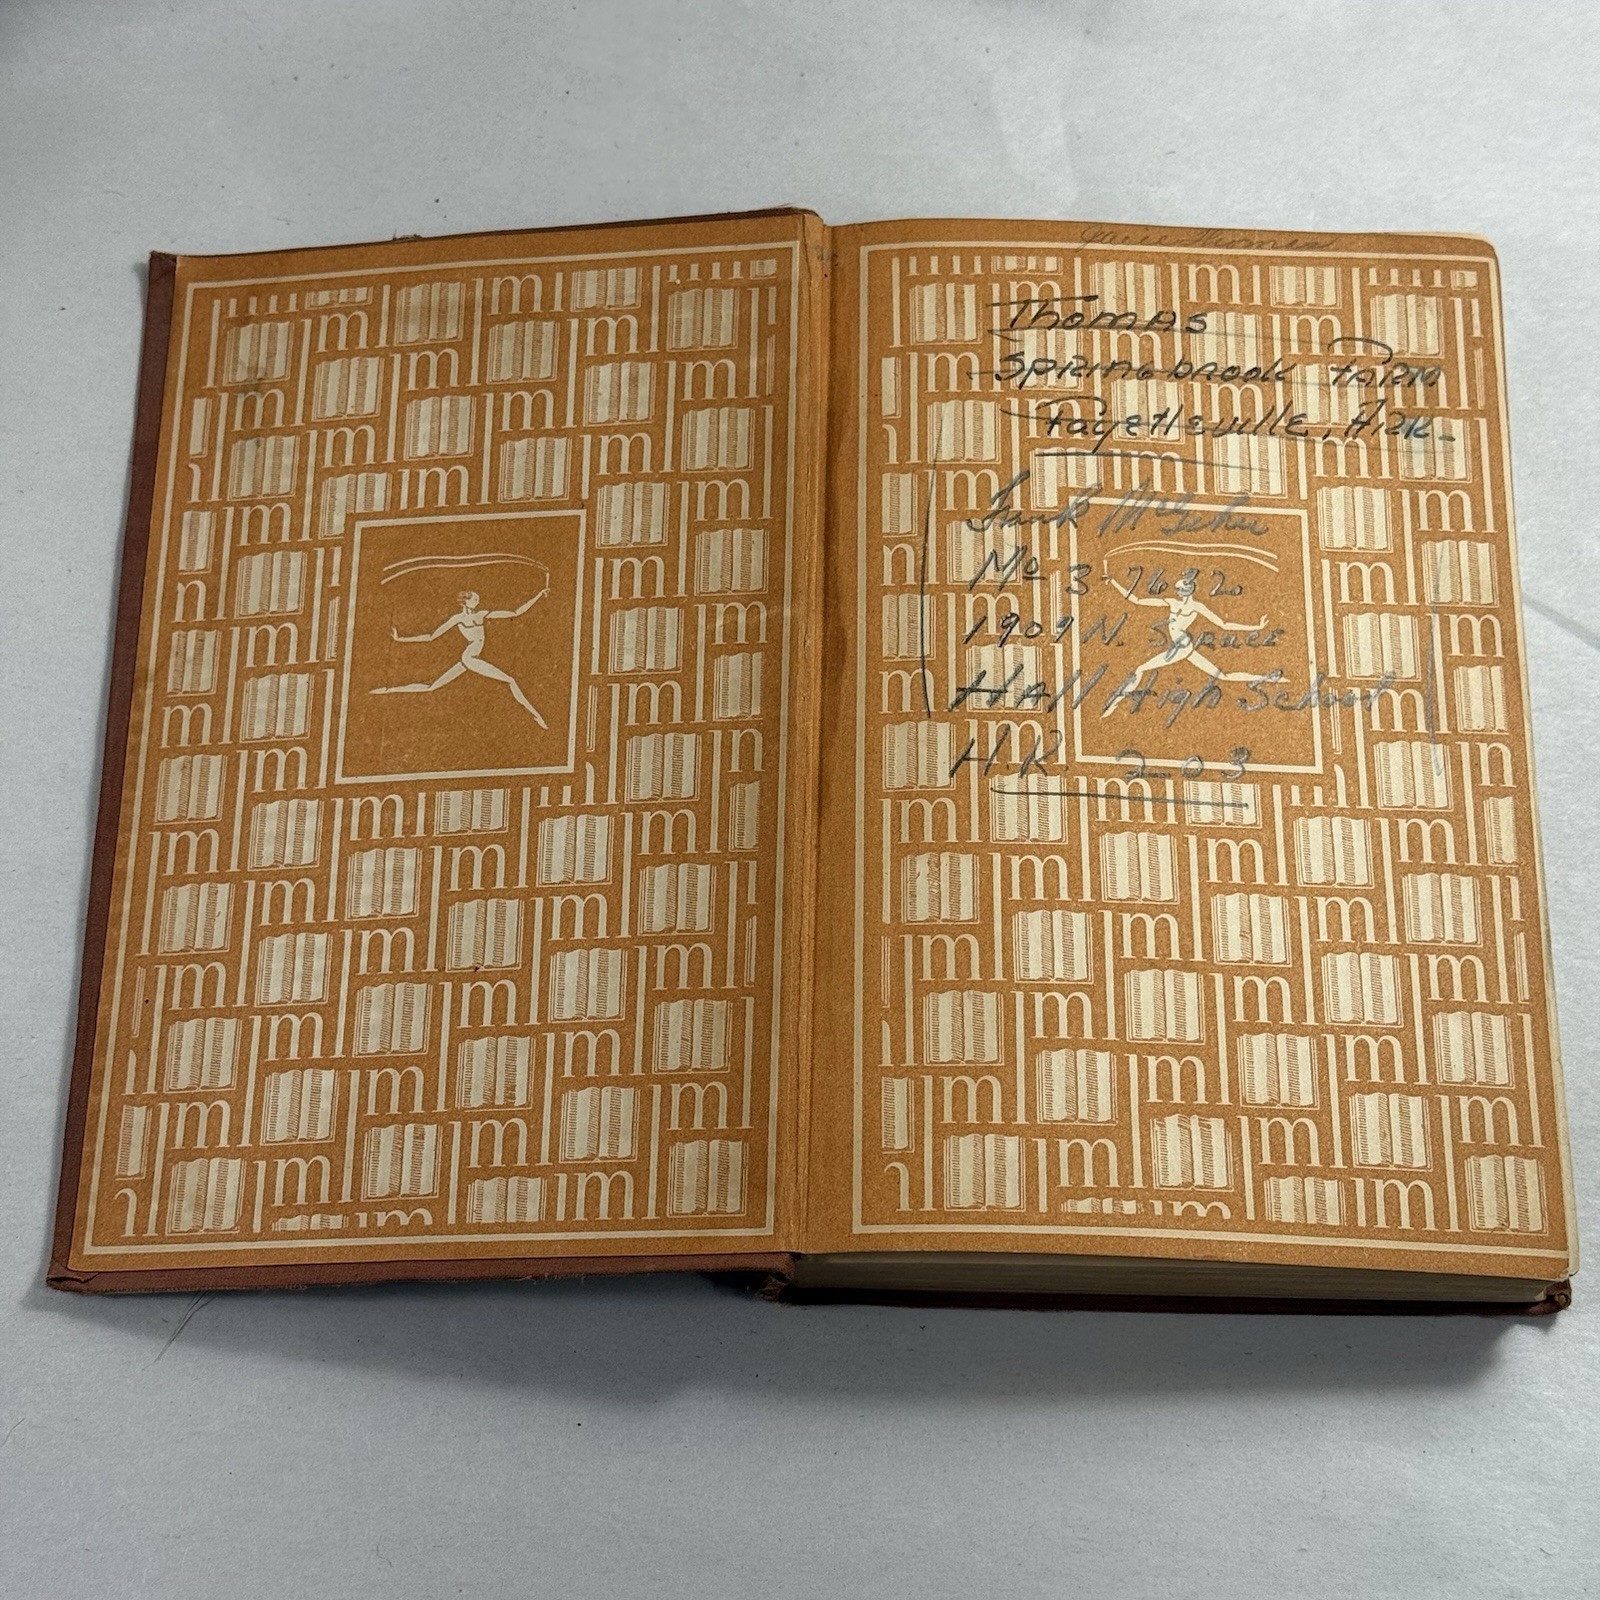 Thomas
Springbrook Farm
Fayetteville, Ark-
Frank McGehee
Mo 3-7632
1909 N. Spruce
Hall High School
H.R. 203